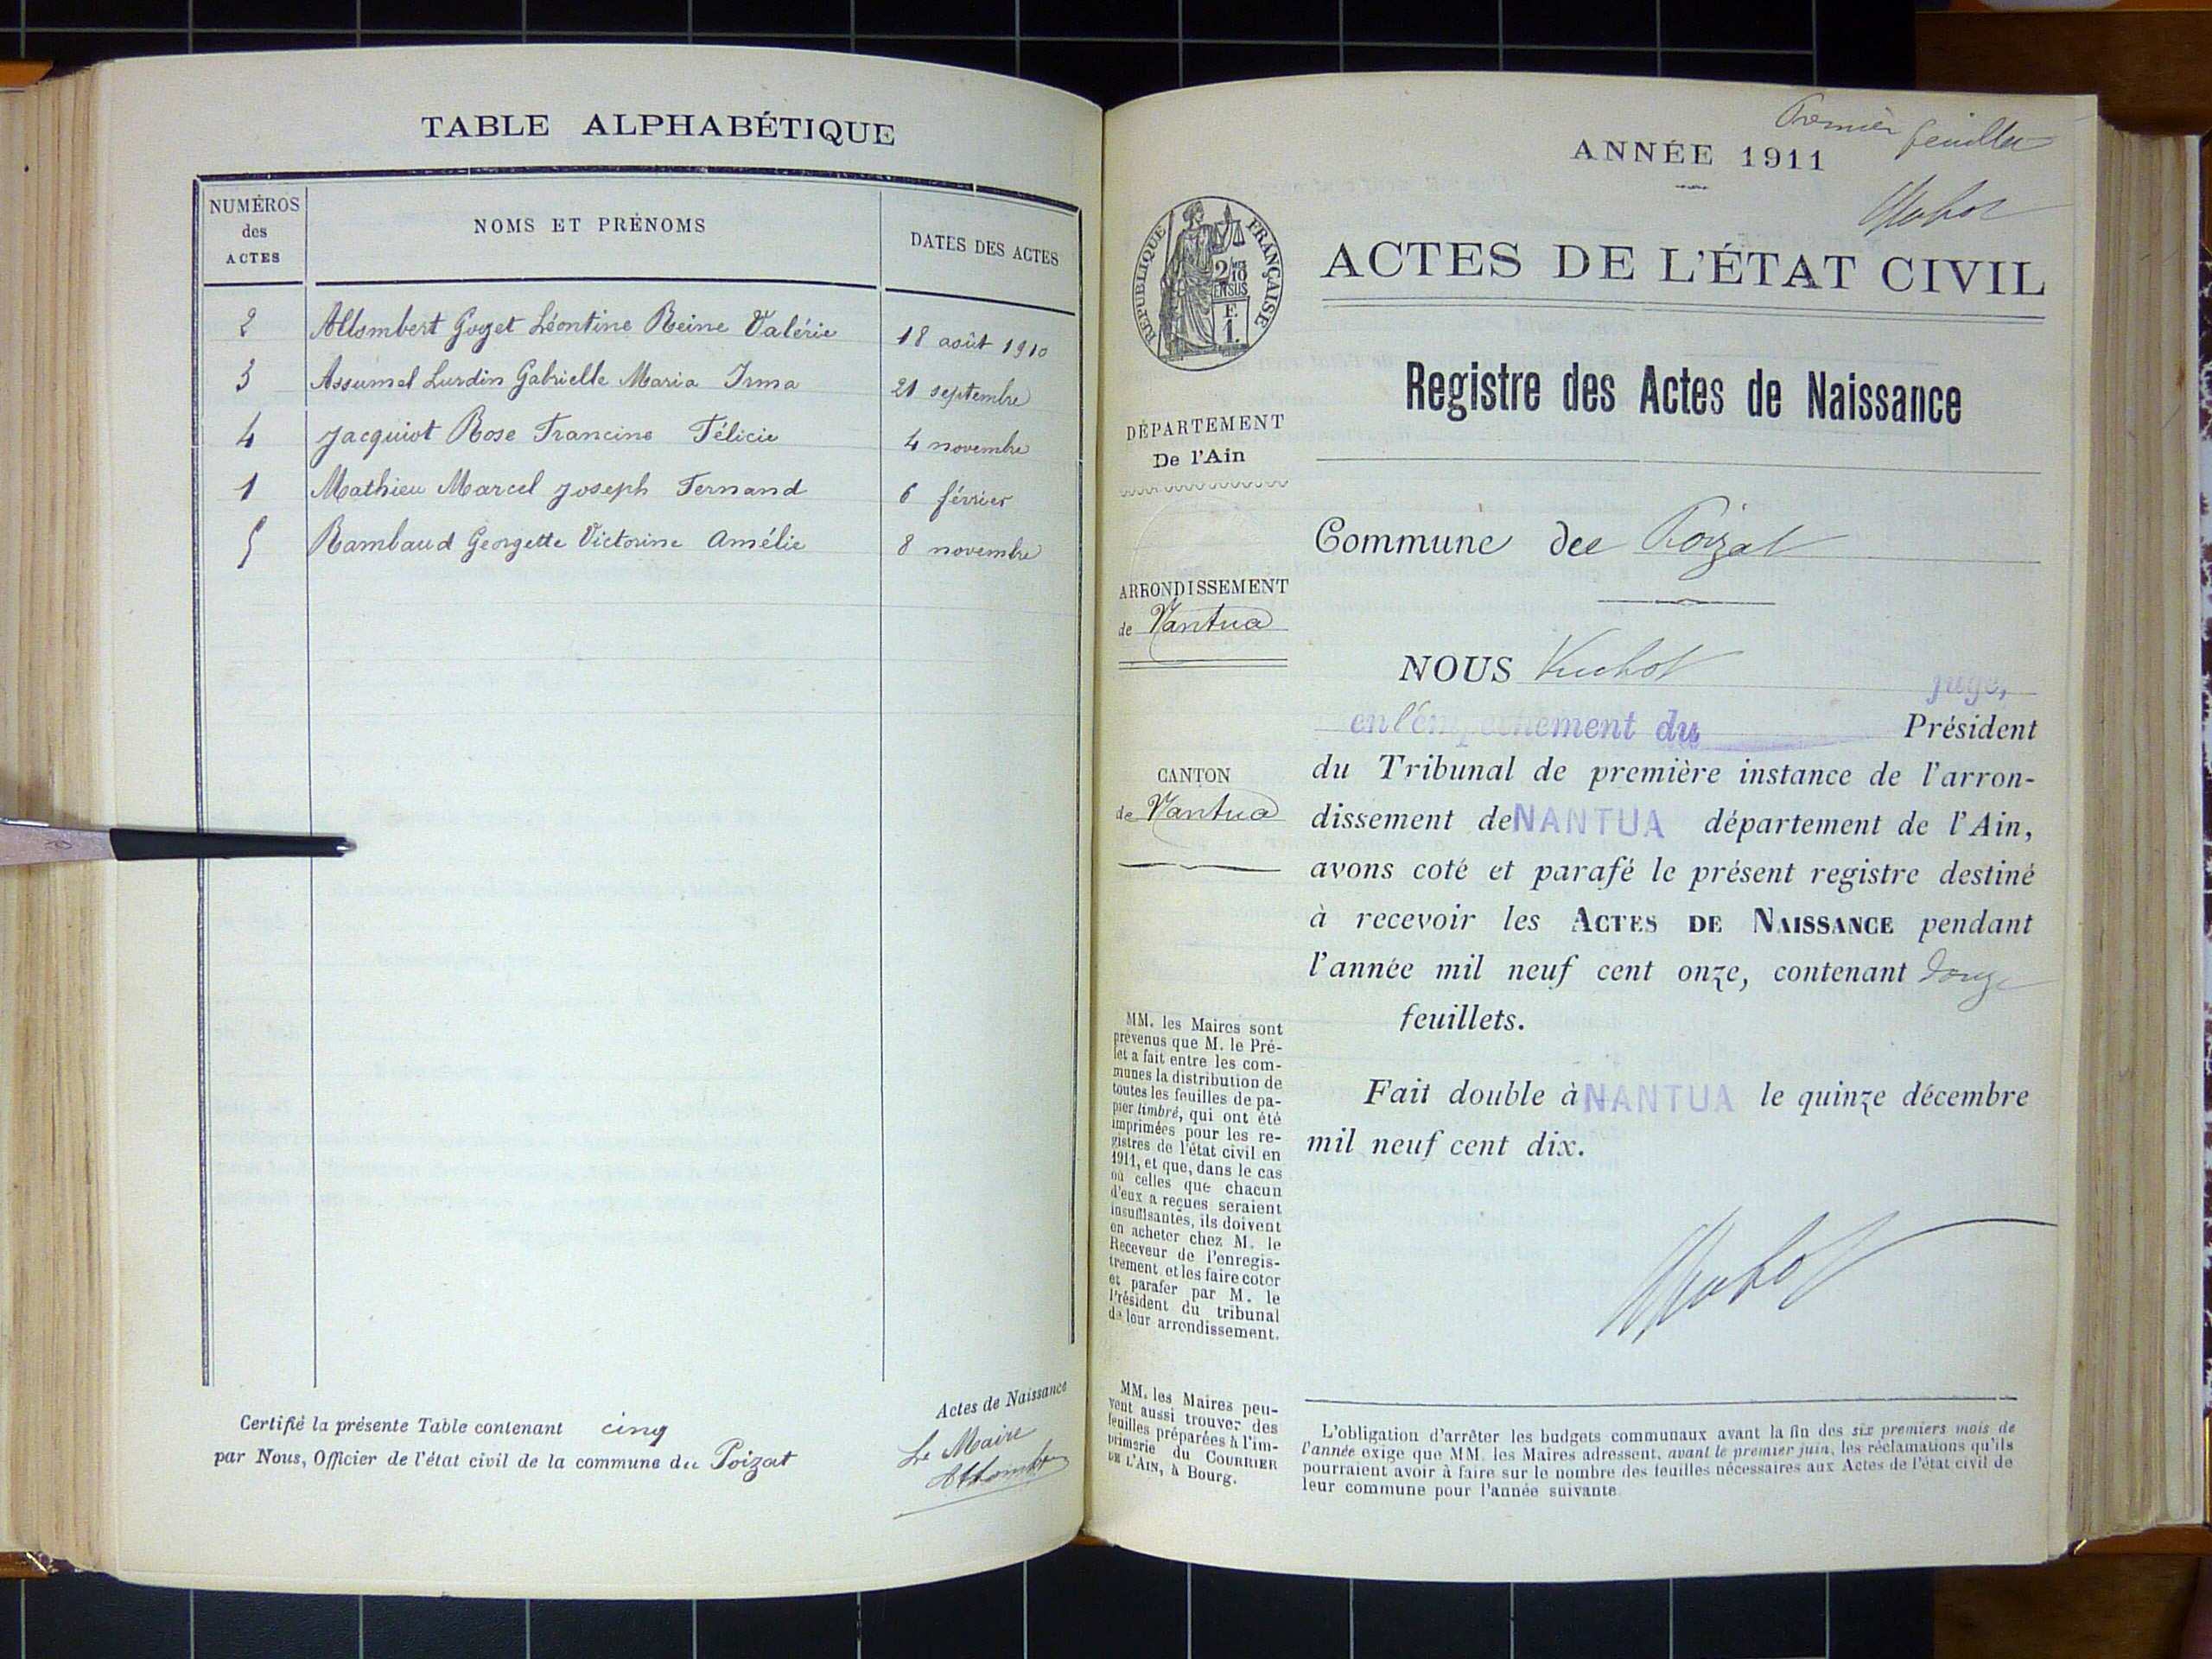 TABLE ALPHABÉTIQUE
NUMÉROS des ACTES
NOMS ET PRÉNOMS
DATES DES ACTES
2 Allombert Goget Léontine Reine Valérie 18 août 1910
3 Assumel Lurdin Gabrielle Maria Irma 21 septembre
4 Jacquiot Rose Francine Félicie 4 novembre
1 Mathieu Marcel Joseph Fernand 6 février
5 Rambaud Georgette Victorine Amélie 8 novembre
Certifié la présente Table contenant cinq Actes de Naissance
par Nous, Officier de l'état civil de la commune du Poizat
Le Maire
Premier feuillet
ANNÉE 1911
RÉPUBLIQUE FRANÇAISE
2/10 EN SUS
F.
1.
ACTES DE L'ÉTAT CIVIL
Registre des Actes de Naissance
DÉPARTEMENT
De l'Ain
ARRONDISSEMENT
de Nantua
CANTON
de Nantua
MM. les Maires sont
prévenus que M. le Pré-
fet a fait entre les com-
munes la distribution de
toutes les feuilles de pa-
pier timbré, qui ont été
imprimées pour les re-
gistres de l'état civil en
1911, et que, dans le cas
où celles que chacun
d'eux a reçues seraient
insuffisantes, ils doivent
en acheter chez M. le
Receveur de l'enregis-
trement et les faire coter
et parafer par M. le
Président du tribunal
de leur arrondissement.
MM. les Maires peu-
vent aussi trouver des
feuilles préparées à l'im-
primerie du COURRIER
DE L'AIN, à Bourg.
Commune de Poizat
NOUS juge,
en l'empêchement du Président
du Tribunal de première instance de l'arron-
dissement de NANTUA département de l'Ain,
avons coté et parafé le présent registre destiné
à recevoir les ACTES DE NAISSANCE pendant
l'année mil neuf cent onze, contenant douze
feuillets.
Fait double à NANTUA le quinze décembre
mil neuf cent dix.
L'obligation d'arrêter les budgets communaux avant la fin des six premiers mois de
l'année exige que MM. les Maires adressent, avant le premier juin, les réclamations qu'ils
pourraient avoir à faire sur le nombre des feuilles nécessaires aux Actes de l'état civil de
leur commune pour l'année suivante.